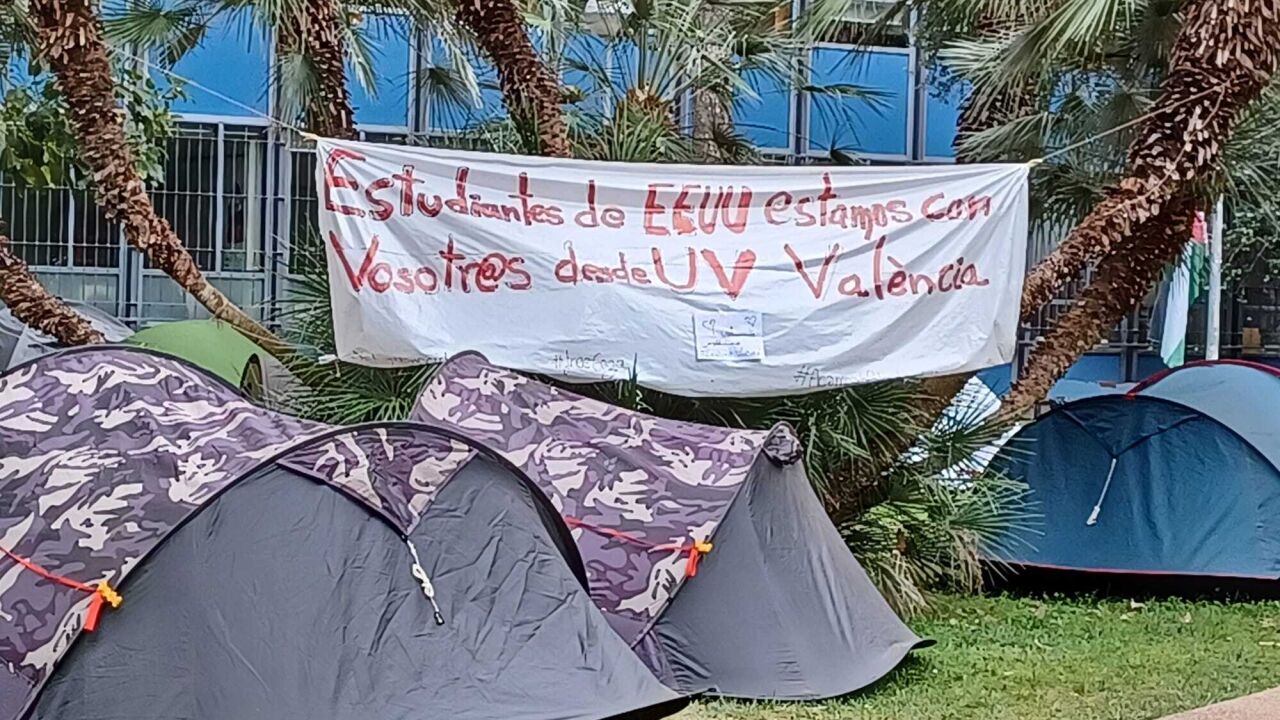 Estudiantes de EEUU estamos con
Vosotr@s desde UV València